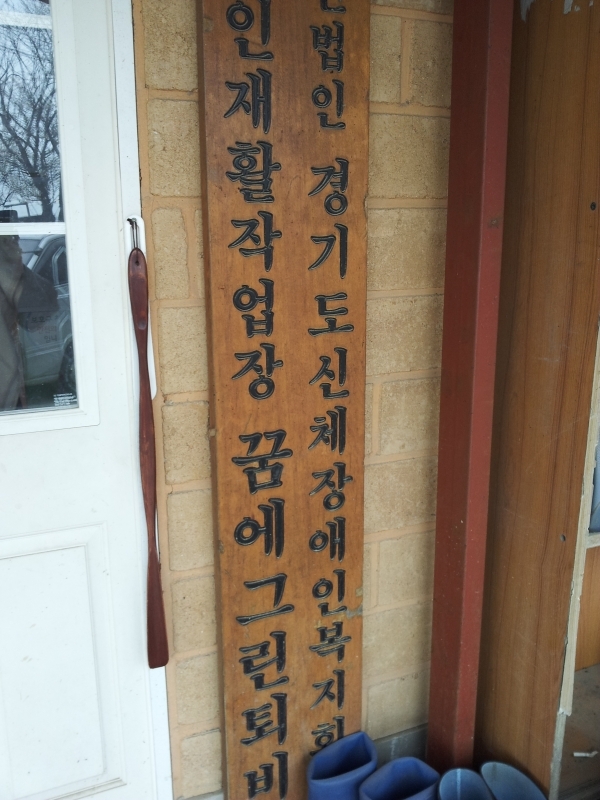 법인 경기도신체장애인복지회
인재활작업장 꿈에그린퇴비